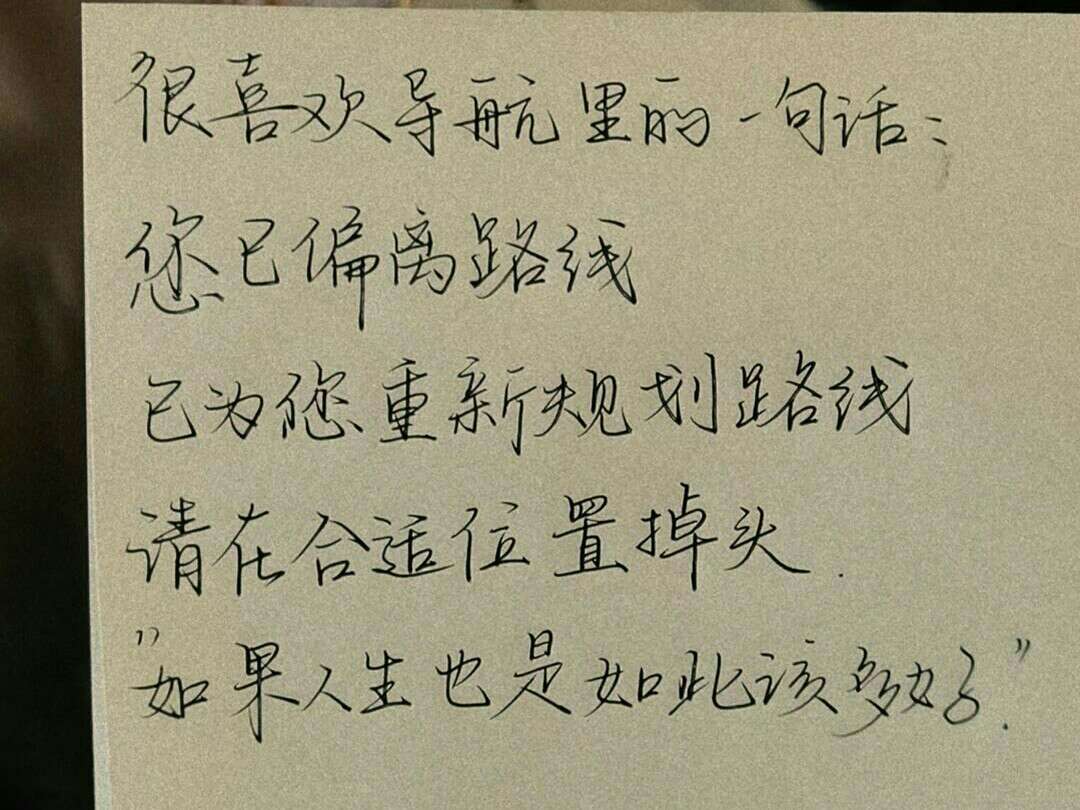 很喜欢导航里的一句话：
您已偏离路线
已为您重新规划路线
请在合适位置掉头.
"如果人生也是如此该多好."